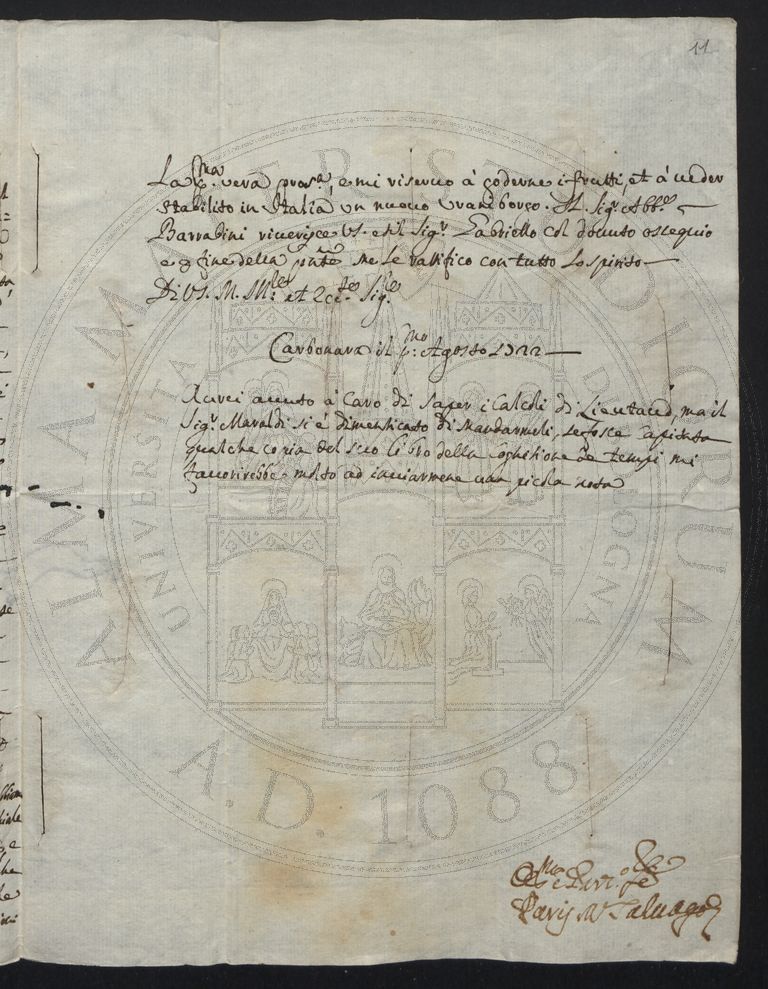 11
La p.ma vera prosa, e mi riseruo à goderne i frutti, et à ueder
stabilito in Italia un nuouo Vraniborgo. Il Sig.r Abb.e
Barradini riuerisce VS. e il Sig.r Gabriello col douuto ossequio
e p fine della pnte me le rattifico con tutto lo spirito
Di VS. M. Ill.re et Ecc.te Sig.re
Carbonara il p.mo Agosto 1722
Aurei auuto à caro di saper i calcoli di Lieutaud, ma il
Sig.r Maraldi si è dimenticato di mandarmeli, se fosse capitata
qualche copia del suo libro della cognitione de tempi mi
fauorirebbe molto ad inuiarmene una picola nota
Paris M Saluago
ALMA MATER STUDIORUM
UNIVERSITA DI BOLOGNA
A.D. 1088